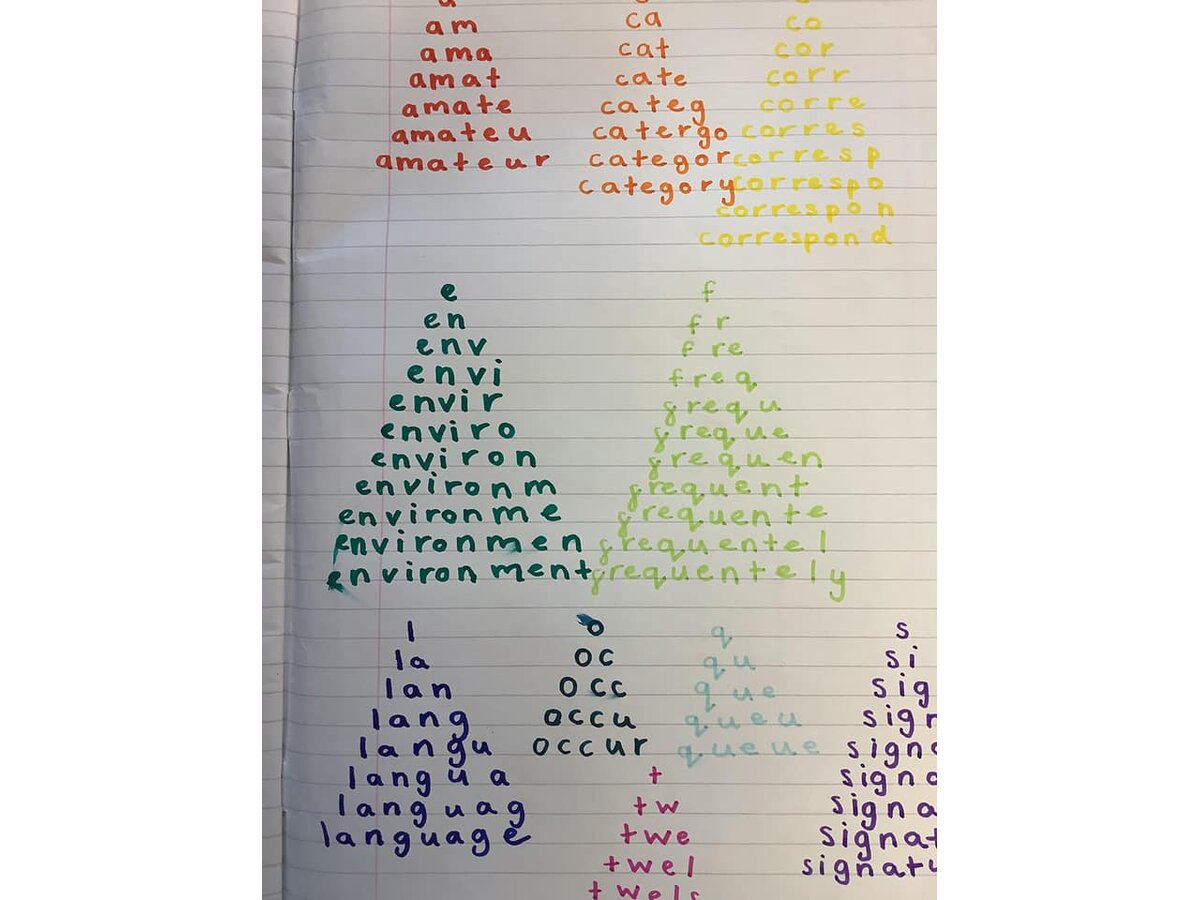 am
ama
amat
amate
amateu
amateur
ca
cat
cate
categ
catergo
categor
category
co
cor
corr
corre
corres
corresp
correspo
correspon
correspond
e
en
env
envi
envir
enviro
environ
environm
environme
environmen
environment
f
fr
fre
freq
frequ
freque
frequen
frequent
frequente
frequentel
frequentely
l
la
lan
lang
langu
langua
languag
language
o
oc
occ
occu
occur
q
qu
que
queu
queue
t
tw
twe
twel
s
si
sig
sign
signa
signa
signa
signat
signatu